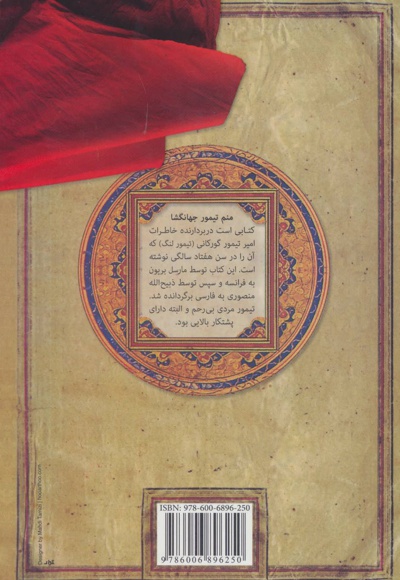 منم تیمور جهانگشا
کتابی است دربردارنده خاطرات
امیر تیمور گورکانی (تیمور لنگ) که
آن را در سن هفتاد سالگی نوشته
است. این کتاب توسط مارسل بریون
به فرانسه و سپس توسط ذبیح‌الله
منصوری به فارسی برگردانده شد.
تیمور مردی بی‌رحم و البته دارای
پشتکار بالایی بود.
ISBN: 978-600-6896-250
9 786006 896250